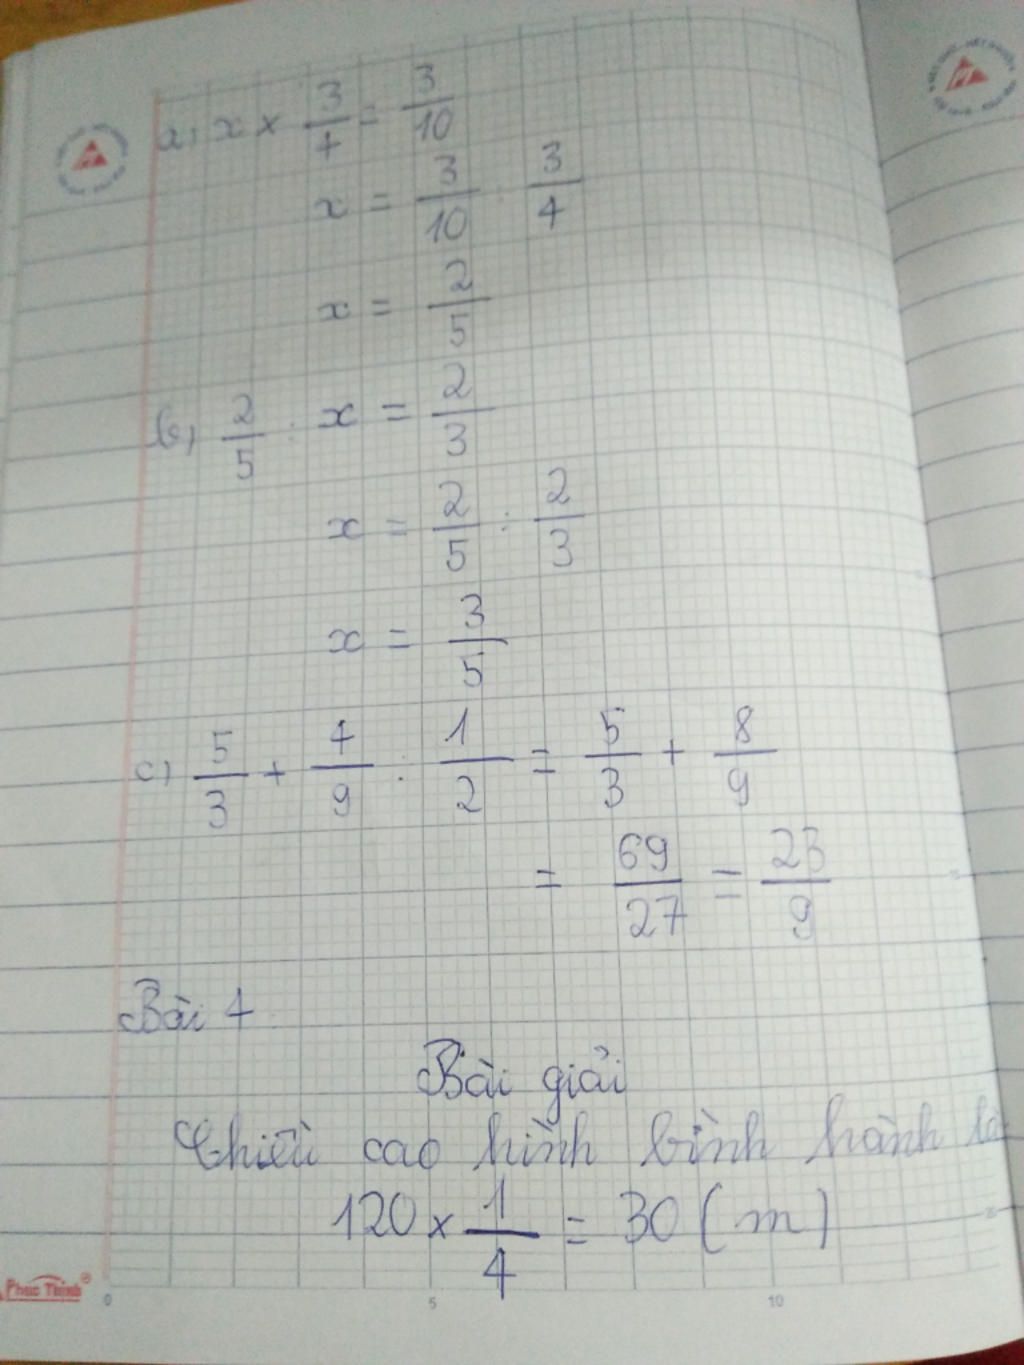 a) x × 3/4 = 3/10
x = 3/10 : 3/4
x = 2/5
b) 2/5 : x = 2/3
x = 2/5 : 2/3
x = 3/5
c) 5/3 + 4/9 : 1/2 = 5/3 + 8/9
= 69/27 = 23/9
Bài 4
Bài giải
Chiều cao hình bình hành là
120 × 1/4 = 30 (m)
Phúc Thịnh®
0 5 10